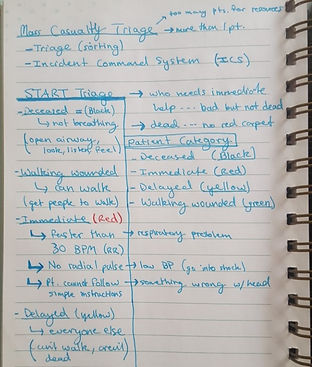 too many pts. for resources
Mass Casualty Triage → more than 1 pt.
- Triage (sorting)
- Incident Command System (ICS)
START Triage → who needs immediate
help --- bad but not dead
- Deceased = (Black) → dead --- no red carpet
↳ not breathing
(open airway,
look, listen, feel)
Patient Category:
- Deceased (Black)
- Walking wounded - Immediate (Red)
↳ can walk - Delayed (yellow)
(get people to walk) - Walking wounded (green)
- Immediate (Red)
↳ faster than → respiratory problem
30 BPM (RR)
↳ No radial pulse → low BP (go into shock)
↳ Pt. cannot follow → something wrong w/ head
simple instructions
- Delayed (yellow)
↳ everyone else
(can't walk, aren't
dead